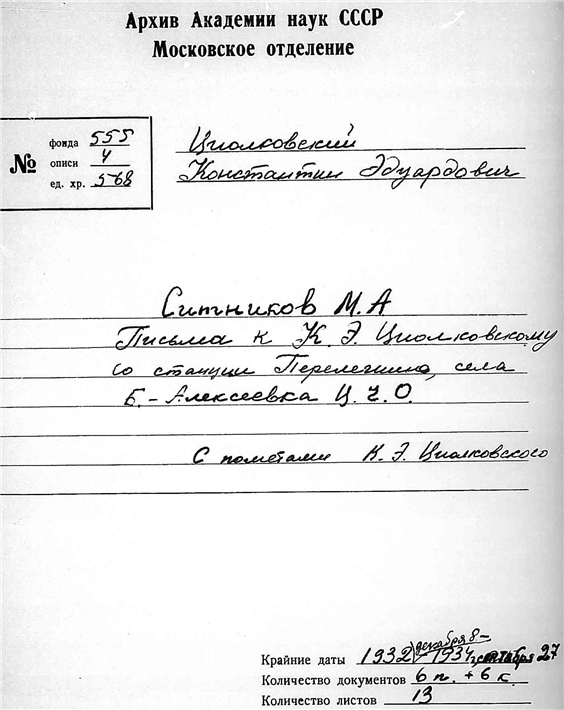 Архив Академии наук СССР
Московское отделение
№
фонда 555
описи 4
ед. хр. 568
Циолковский
Константин Эдуардович
Ситников М.А
Письма к К.Э. Циолковскому
со станции Перелешино, села
Б.-Алексеевка Ц.Ч.О.
С пометами К.Э. Циолковского
декабря 8 -
Крайние даты 1932 - 1934, сентября 27
Количество документов 6 п. + 6 к.
Количество листов 13